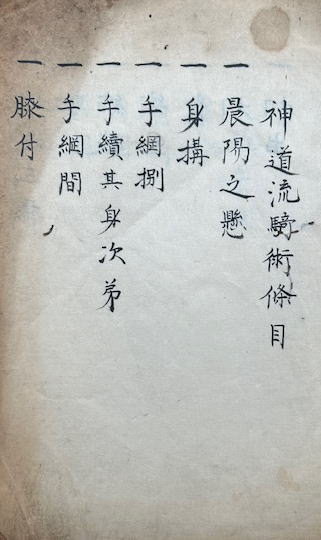 神道流騎術條目
一 晨陽之懸
一 身搆
一 手綱捌
一 手續其身次弟
一 手綱間
一 膝付